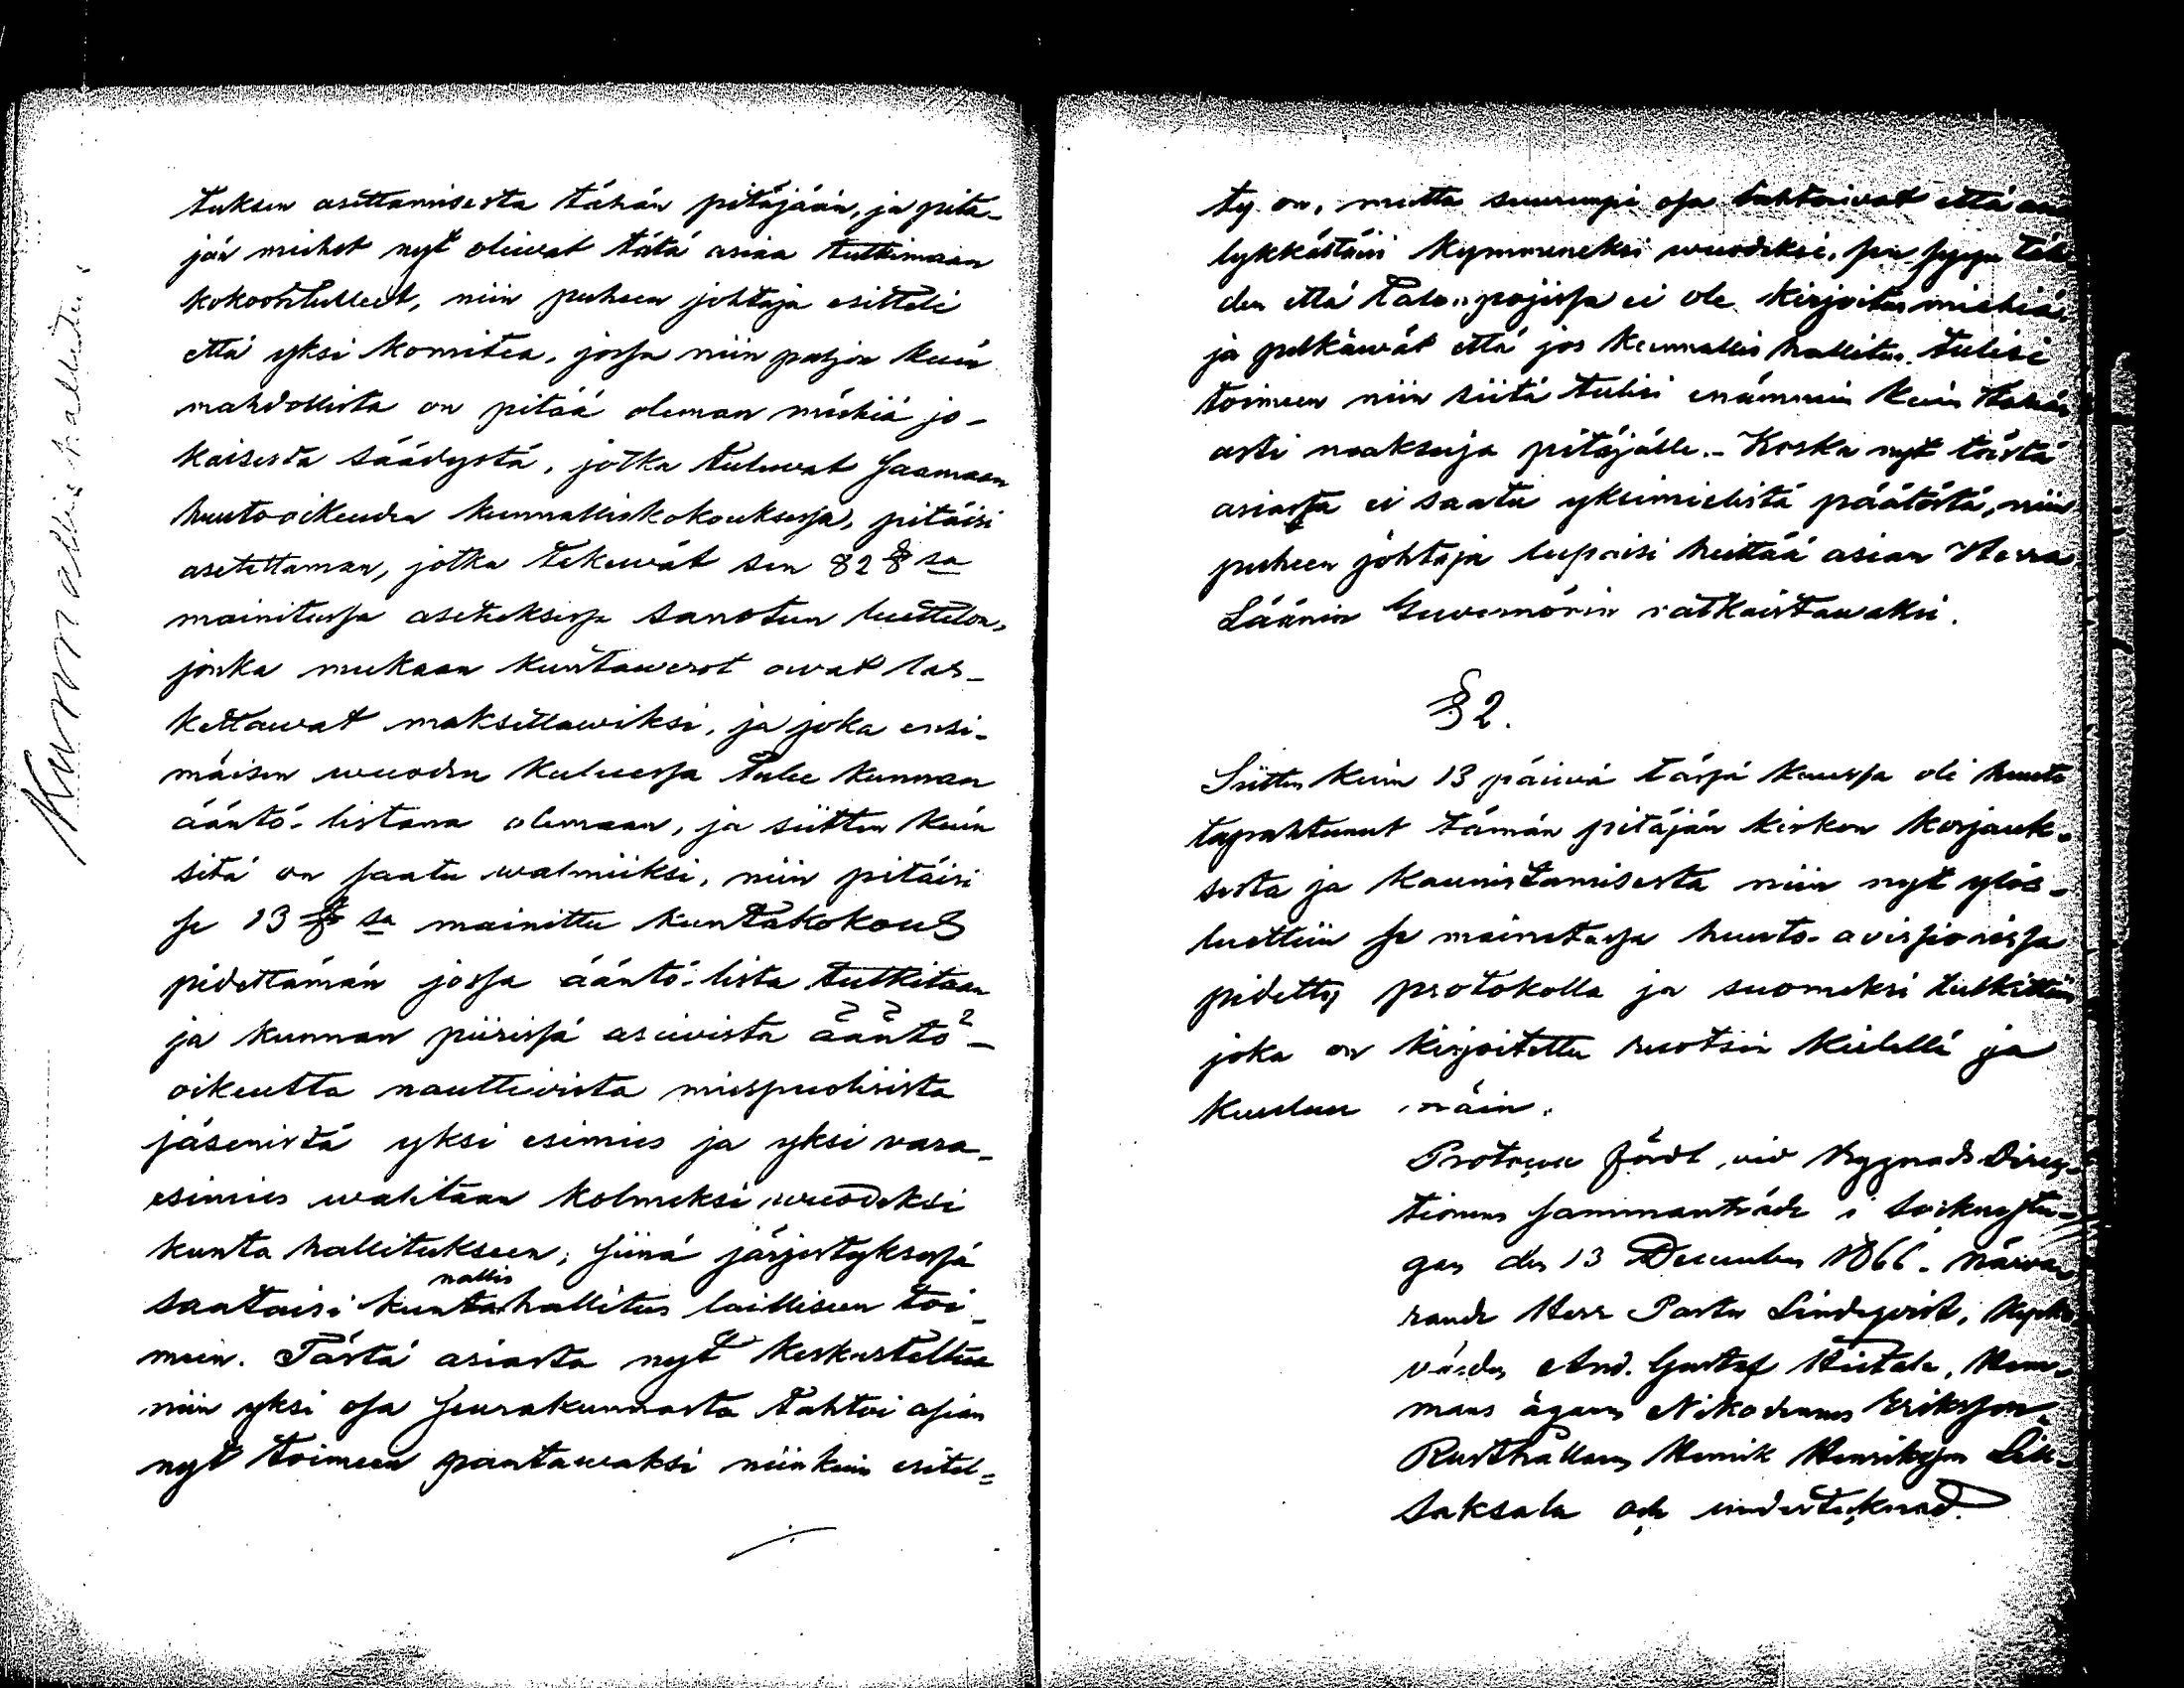 Kunnallis hallitus
tuksen asettamisesta tähän pitäjään, ja pitä-
jän miehet nyt oliwat tätä asiaa tutkimaan
kokoontulleet, niin puheen johtaja esitteli
että yksi komitea, jossa niin paljon kuin
mahdollista on pitää oleman miehiä jo-
kaisesta säädystä, jotka tulewat saamaan
huutooikeuden kunnalliskokouksessa, pitäisi
asetettaman, jotka tekewät sen 82 § sa
mainitussa asetuksessa sanotun luettelon,
jonka mukaan kuntawerot owat las-
kettawat maksettawiksi, ja joka ensi-
mäisen wuoden kuluessa tulee kunnan
ääntö-listana olemaan, ja siitten kuin
sitä on saatu walmiiksi, niin pitäisi
se 13 § sa mainittu kuntakokous
pidettämän jossa ääntö-lista tutkitaan
ja kunnan piirissä asuwista ääntö-
oikeutta nauttiwista miespuolisista
jäsenistä yksi esimies ja yksi vara-
esimies walitaan kolmeksi wuodeksi
kunta hallitukseen; siinä järjestyksessä
nallis
saataisi kunta hallitus lailliseen toi-
meen. Tästä asiasta nyt keskusteltua
niin yksi osa seurakunnasta tahtoi asian
nyt toimeen pantawaksi niinkuin esitel-
ty on, mutta suurempi osa tahtoiwat että
lykkästäisi kymmeneksi wuodeksi, sen syyn täh-
den että Talonpojissa ei ole kirjoitusmiehiä,
ja pelkäwät että jos kunnallis hallitus tulisi
toimeen niin siitä tulisi enämmin kuin tähän
asti maaksuja pitäjälle. - Koska nyt tästä
asiasta ei saatu yksimielistä päätöstä, niin
puheen johtaja lupaisi heittää asian Herra
Läänin Guvernörin ratkaistawaksi.
§ 2.
Siitten kuin 13 päiwä tässä kuussa oli huuto
tapahtunut tämän pitäjän kirkon korjauk-
sesta ja kaunistamisesta niin nyt ylös-
luettiin se mainitussa huuto-avisionissa
pidetty protokolla ja suomeksi tulkittiin
joka on kirjoitettu ruotsin kielellä ja
kuuluu näin.
fördt vid Byggnads Direc-
tionens sammanträde i Sockenstu-
gan den 13 December 1866. Närwa-
rande Herr Pastor Lindqvist, Kyrko-
värden And. Gustaf Hietala, Hem-
mans ägaren Nikodemus Eriksson
Rusthållaren Henrik Henriksson
Saksala och undertecknad.